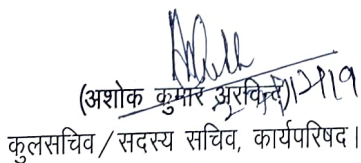 (अशोक कुमार अरविन्द)
कुलसचिव / सदस्य सचिव, कार्यपरिषद।